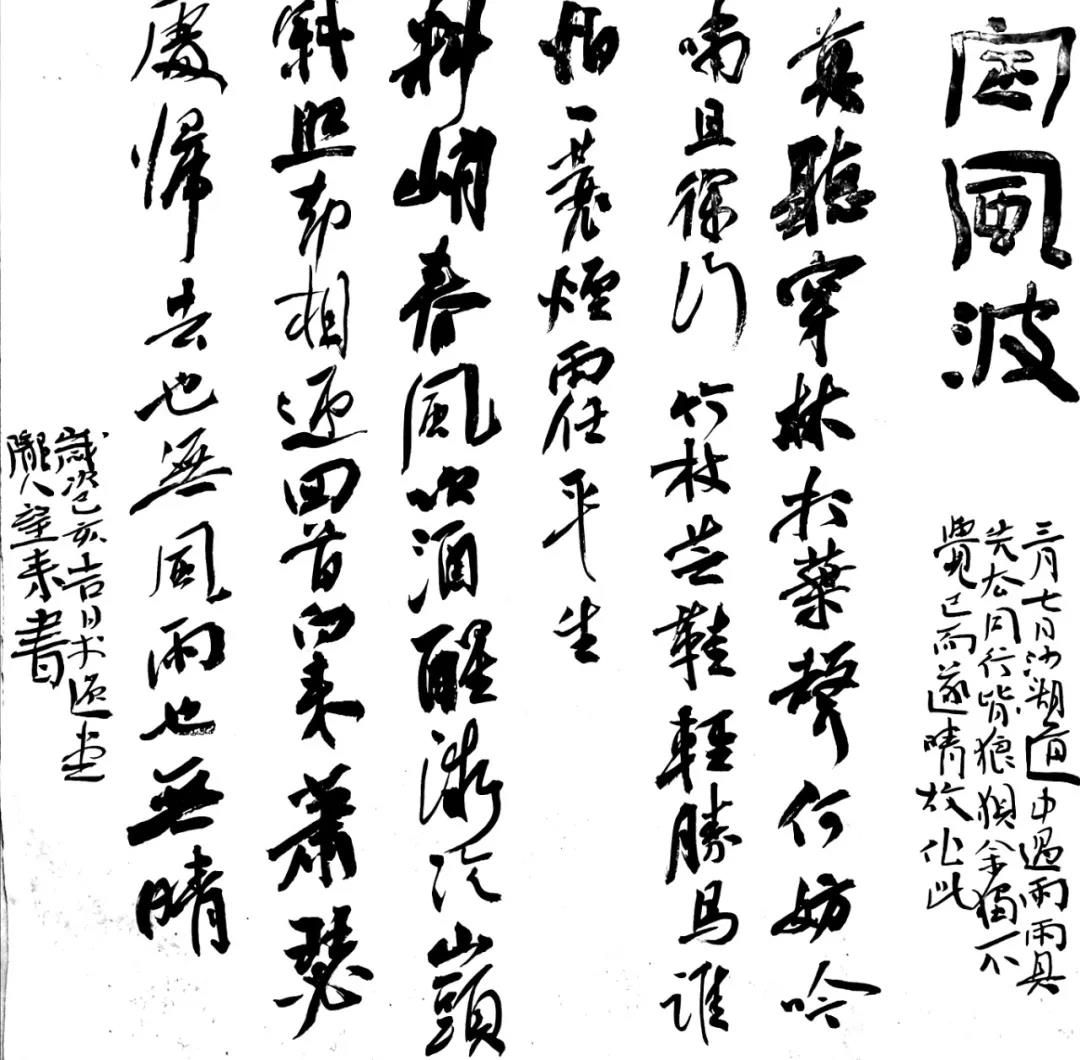 定風波
三月七日沙湖道中遇雨雨具
先去同行皆狼狽余獨不
覺已而遂晴故作此
莫聽穿林打葉聲何妨吟
嘯且徐行 竹杖芒鞋輕勝馬誰
怕一蓑煙雨任平生
料峭春風吹酒醒微冷山頭
斜照却相迎回首向來蕭瑟
處歸去也無風雨也無晴
歲次己亥吉日於堂
隴人望來書